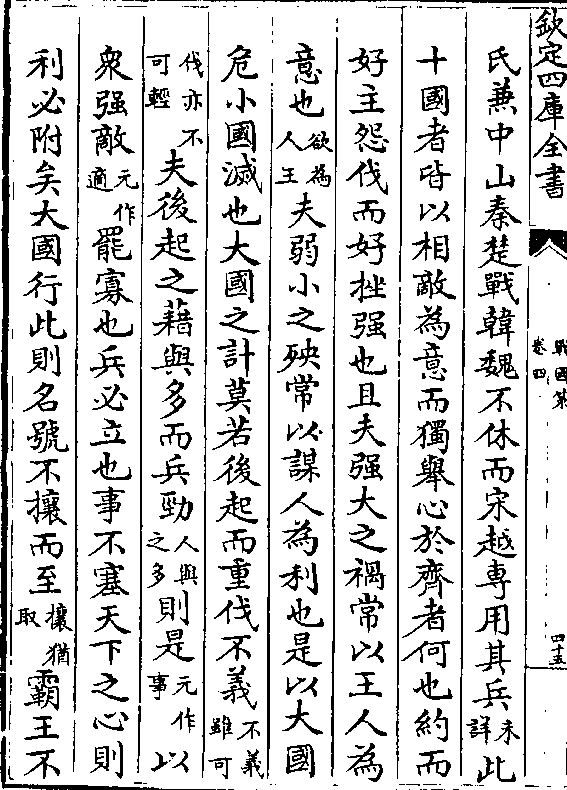 欽定四庫全書
戰國策
卷四
四十五
氏兼中山秦楚戰韓魏不休而宋越専用其兵未詳此
十國者皆以相敵為意而獨舉心於齊者何也約而
好主怨伐而好挫强也且夫强大之禍常以王人為
意也欲為人王夫弱小之殃常以謀人為利也是以大國
危小國滅也大國之計莫若後起而重伐不義不義雖可
伐亦不可輕夫後起之藉與多而兵勁人與之多則是元作事以
衆强敵元作適罷寡也兵必立也事不塞天下之心則
利必附矣大國行此則名號不攘而至攘猶取霸王不